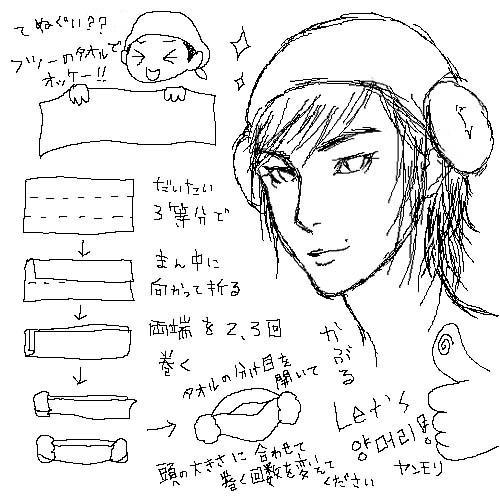 てぬぐい??
フツーのタオルで
オッケー!!
だいたい
3等分で
まん中に
向かって折る
両端を2,3回
巻く
タオルの分け目を
開いて
かぶる
頭の大きさに合わせて
巻く回数を変えて
ください
Let's
양머리
ヤンモリ